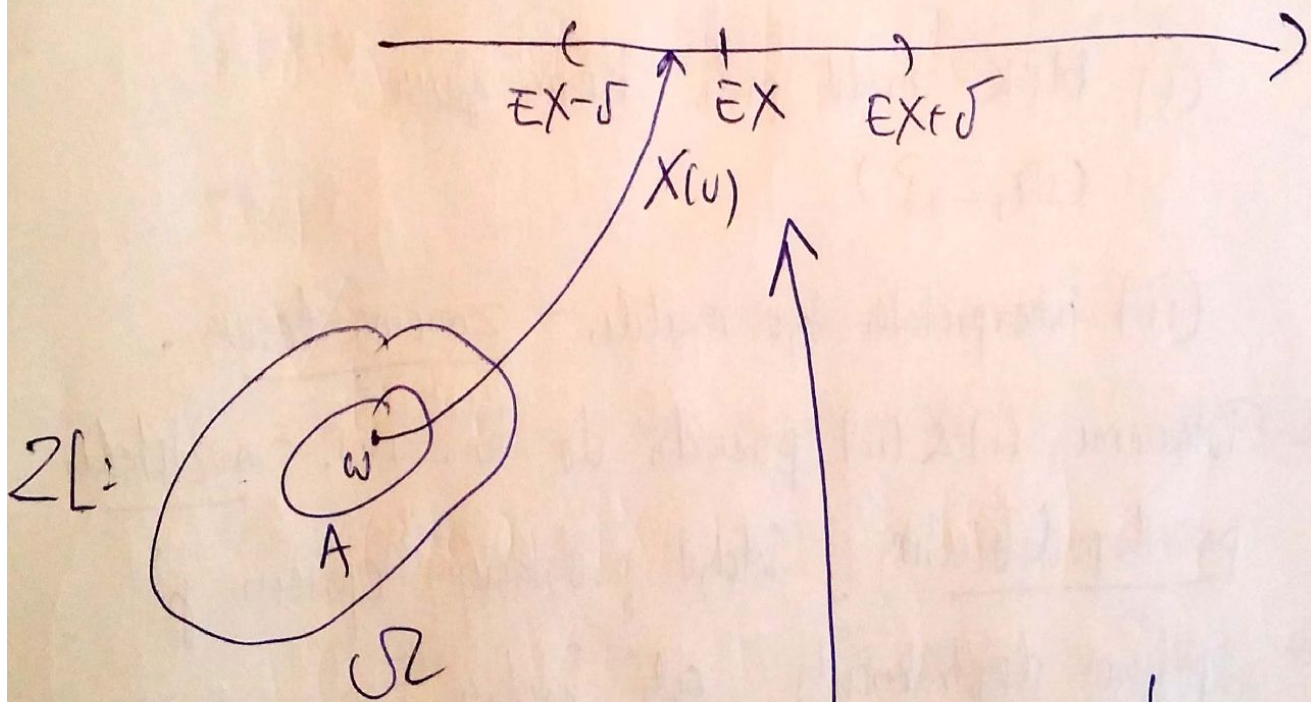 EX-δ EX EX+δ
X(ω)
ω
A
Ω